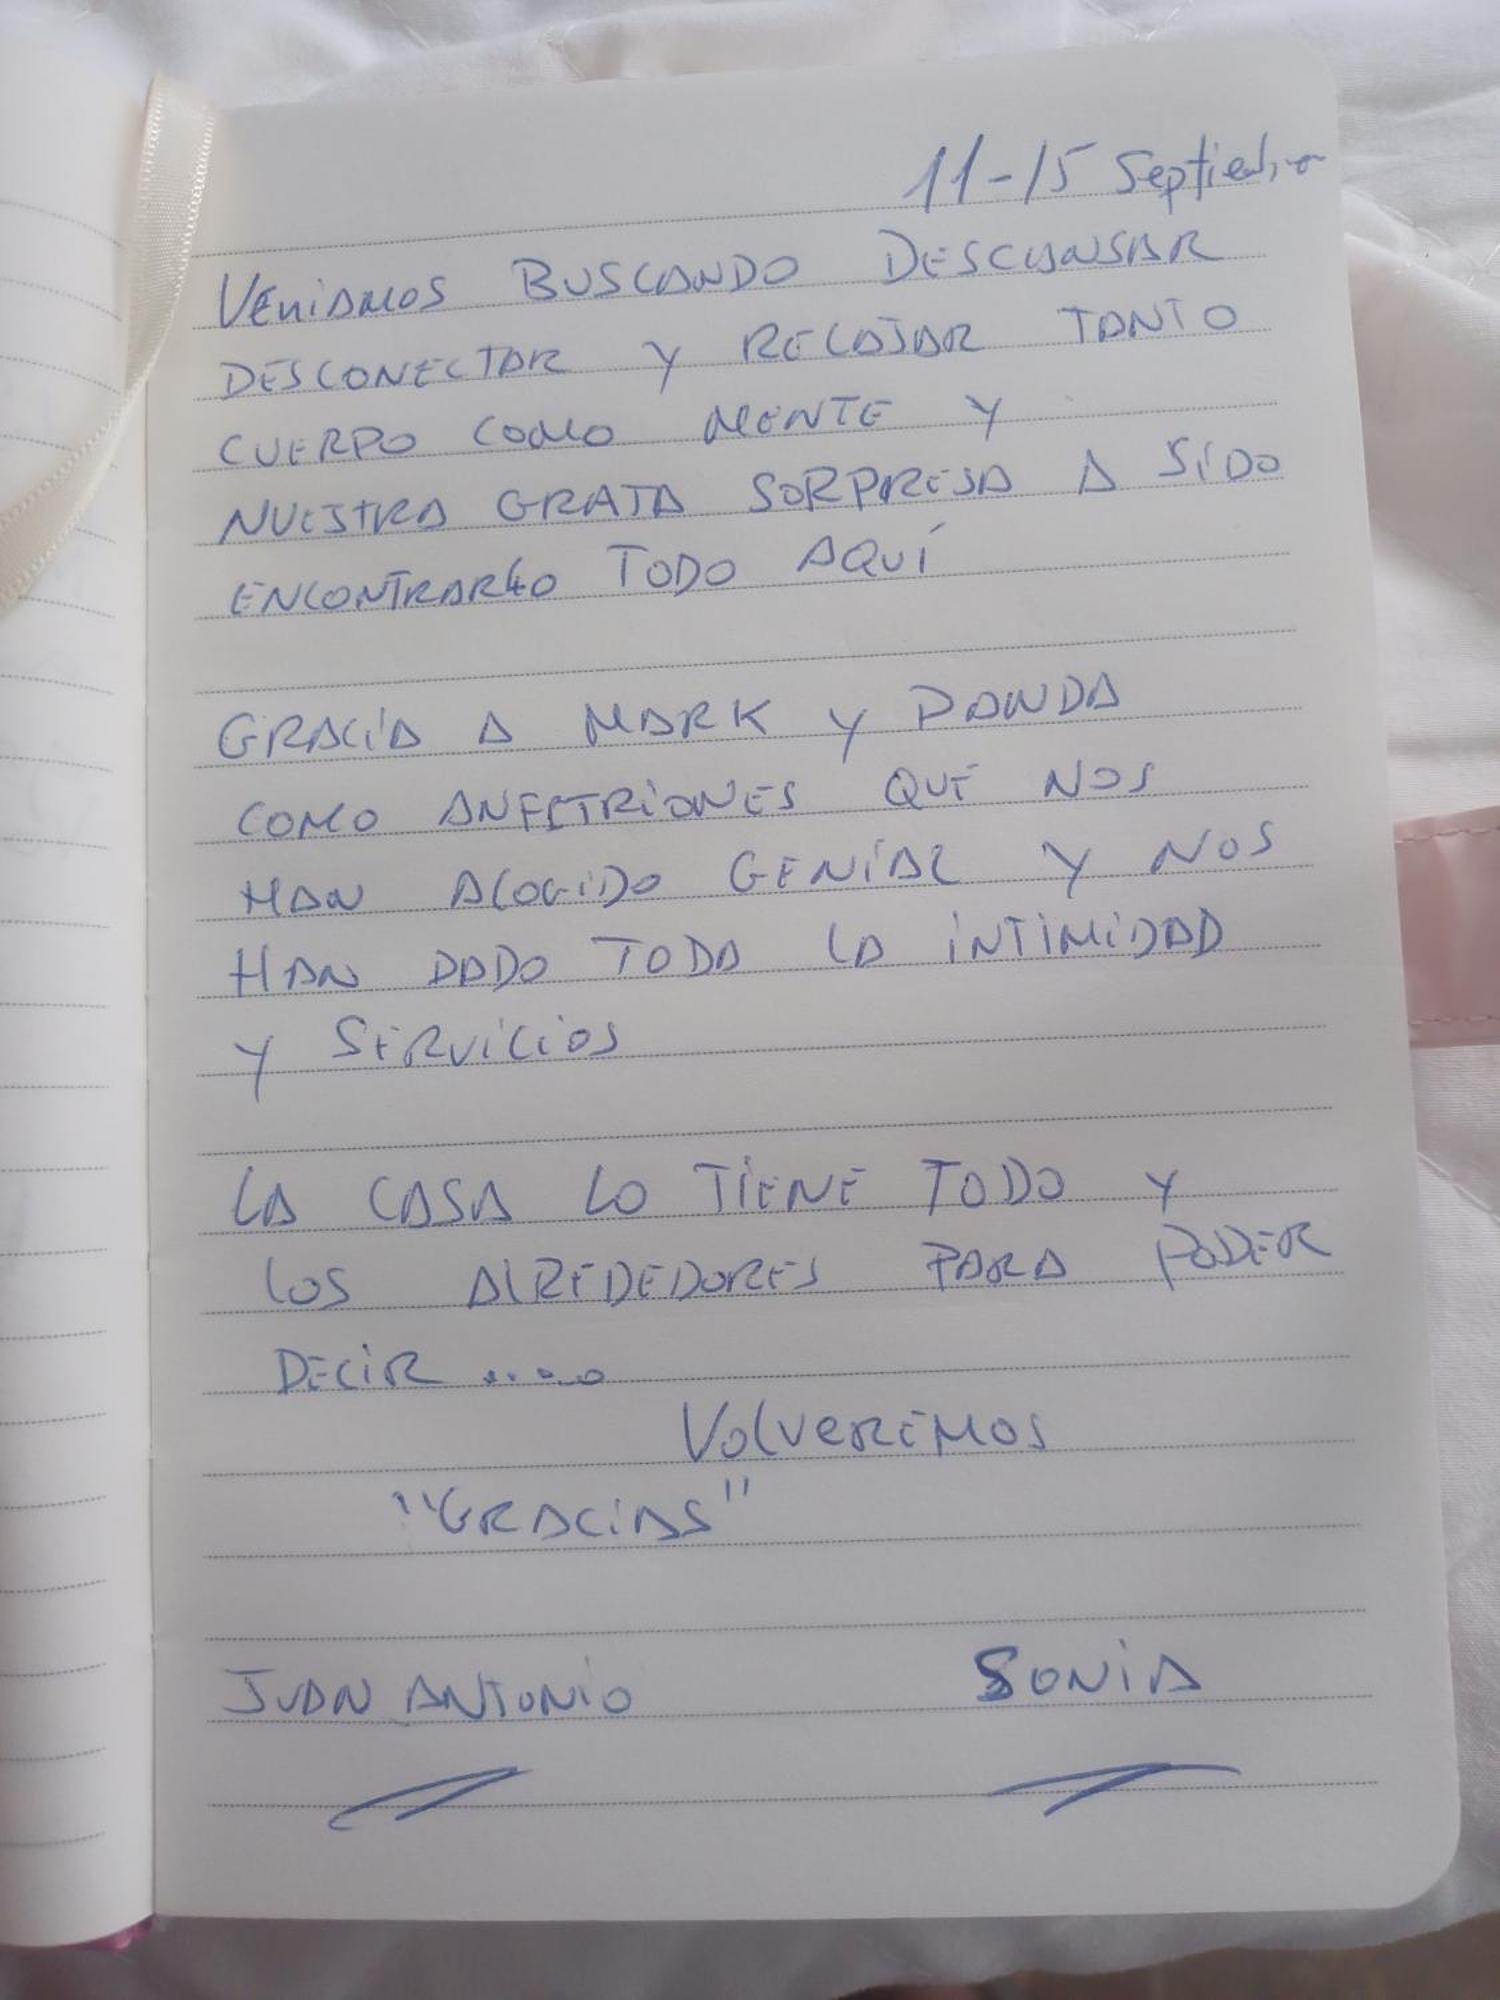 11-15 Septiembre
VENIAMOS BUSCANDO DESCANSAR
DESCONECTAR Y RELAJAR TANTO
CUERPO COMO MENTE Y
NUESTRA GRATA SORPRESA A SIDO
ENCONTRARLO TODO AQUÍ
GRACIA A MARK Y PANDA
COMO ANFITRIONES QUE NOS
HAN ACOGIDO GENIAL Y NOS
HAN DADO TODA LA INTIMIDAD
Y SERVICIOS
LA CASA LO TIENE TODO Y
LOS ALREDEDORES PARA PODER
DECIR .....
VOLVEREMOS
"GRACIAS"
JUAN ANTONIO SONIA